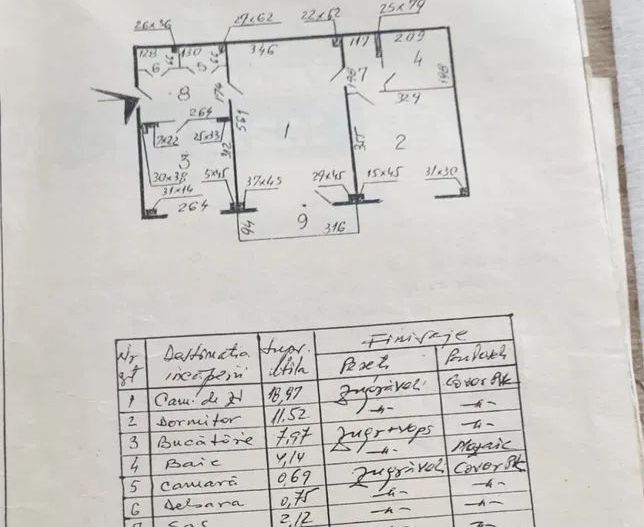 26x36 27x62 22x62 25x79
128 66 130 66 346 117 209
6 5 7 4
8 174 198 198
264 561 324
7x22 25x33 1 2
3 312 357
30x38 5x45 37x45 29x45 15x45 31x30
31x14
264 94 9 316
Nr crt Destinatia încăperii Supr. utilă Finisaje
Pereti Pardoseli
1 Cam. de zi 18,97 Zugrăveli Covor PVC
2 Dormitor 11,52 -"- -"-
3 Bucătărie 7,97 Zugr+vops -"-
4 Baie 4,14 -"- Mozaic
5 Camară 0,69 Zugrăveli Covor PVC
6 Debara 0,75 -"- -"-
7 Sas 2,12 -"- -"-